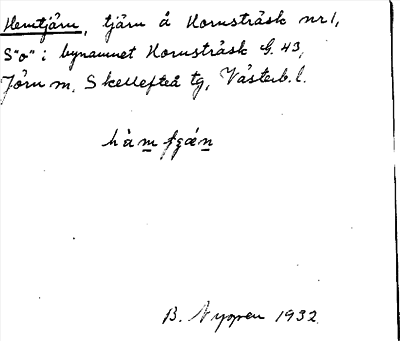 Hemtjärn, tjärn å Hornsträsk nr 1,
S"o" i bynamnet Hornsträsk G. 43,
Jörn sn, Skellefteå tg, Västerb. l.
B. Nygren 1932.